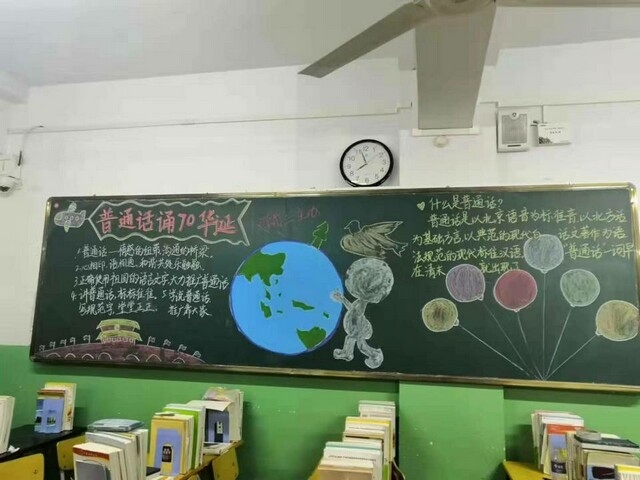 普通话诵70华诞
1.普通话—情感的纽带,沟通的桥梁。
2.心相印,语相通,和衷共处乐融融。
3.正确使用祖国的语言文字大力推广普通话
4.讲普通话,标标准准,5.学说普通话
写规范字,堂堂正正。 推广靠大家
什么是普通话?
普通话是以北京语音为标准音,以北方话
为基础方言,以典范的现代白话文著作为语
法规范的现代标准汉语。"普通话"一词早
在清末 就出现了